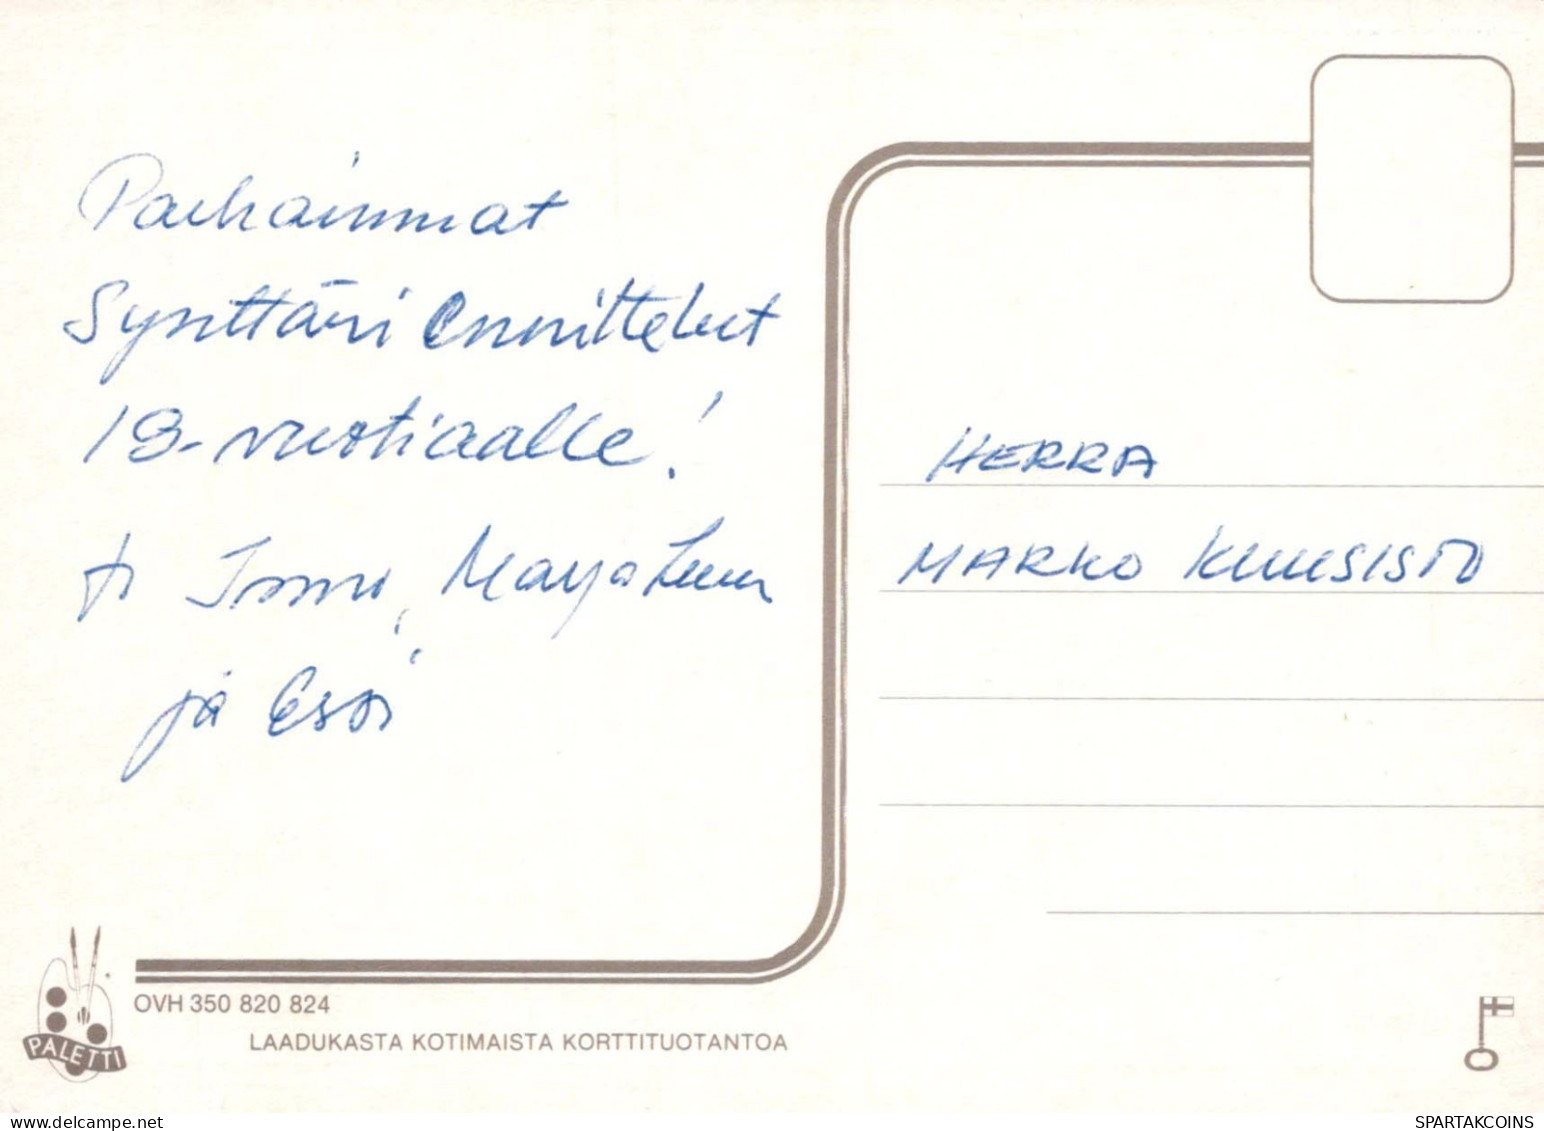 Parhaimmat
Synttäri Onnittelut
18-vuotiaalle!
ja Essi
HERRA
MARKO KUUSISTO
OVH 350 820 824
LAADUKASTA KOTIMAISTA KORTTITUOTANTOA
PALETTI
delcampe.net
SPARTAKCOINS